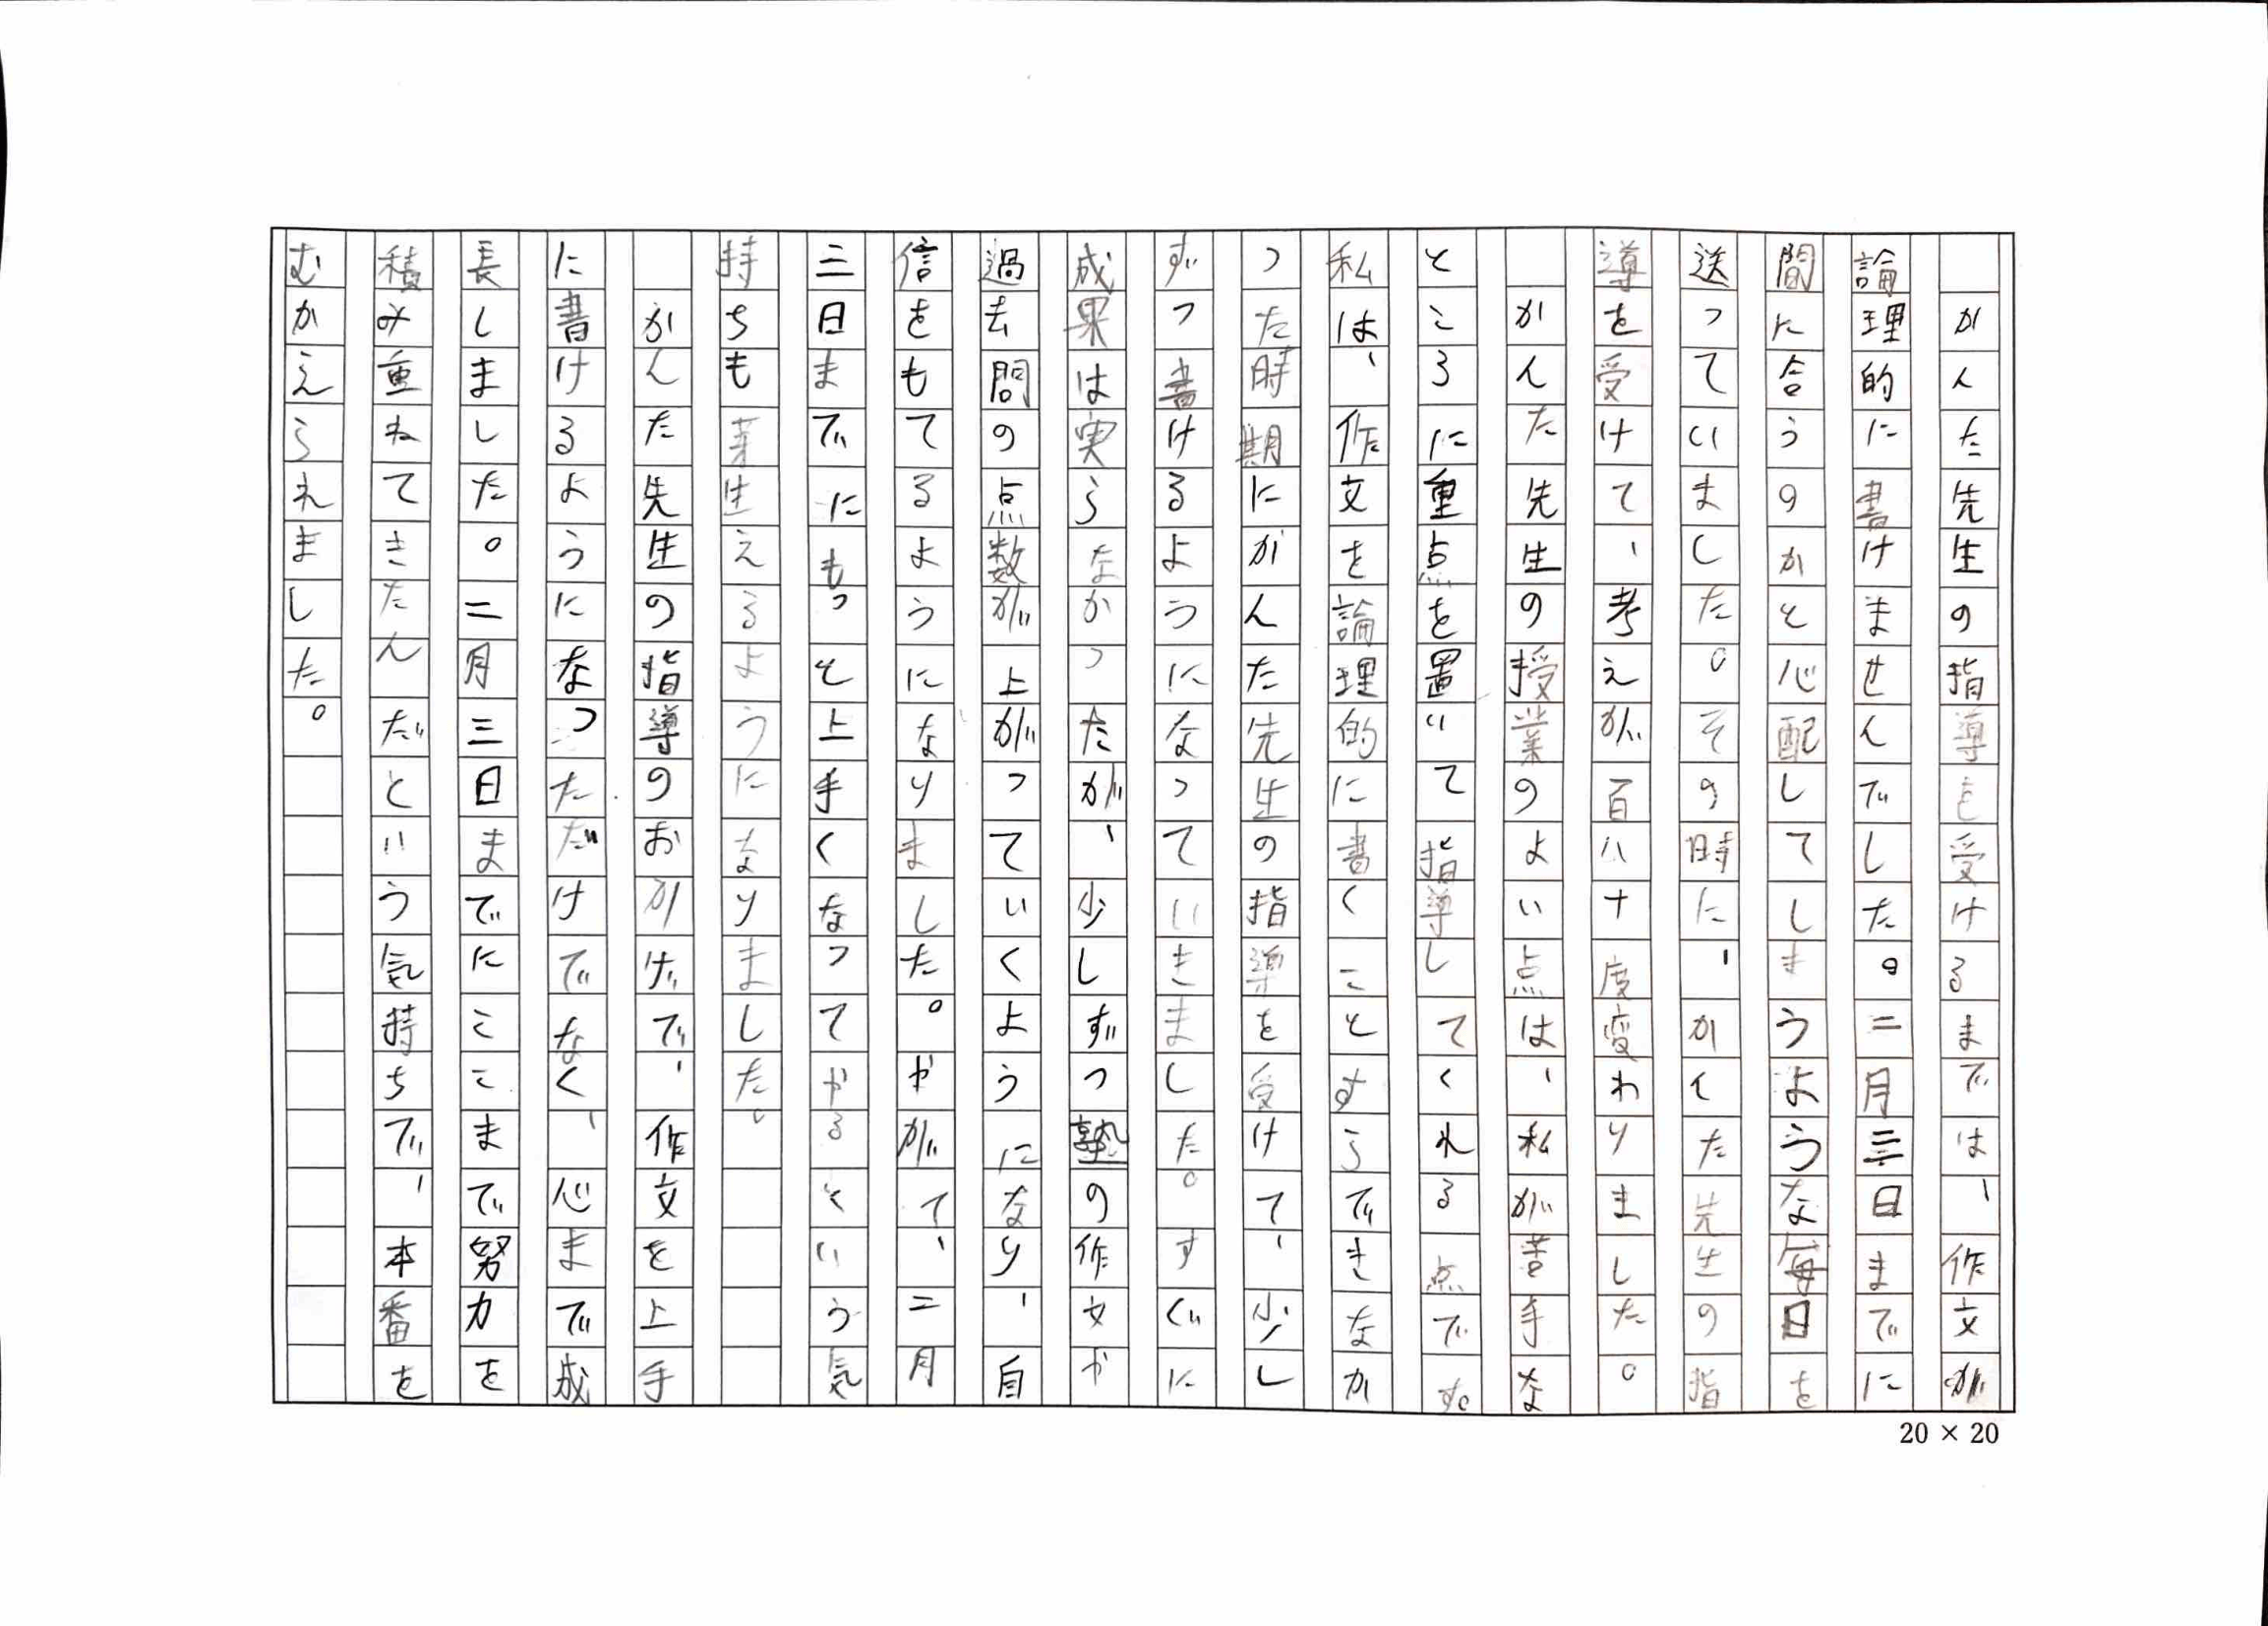 かんた先生の指導を受けるまでは、作文が
論理的に書けませんでした。二月三日までに
間に合うのかと心配してしまうような毎日を
送っていました。その時に、かんた先生の指
導を受けて、考えが百八十度変わりました。
　かんた先生の授業のよい点は、私が苦手な
ところに重点を置いて指導してくれる点です。
私は、作文を論理的に書くことすらできなか
った時期にかんた先生の指導を受けて、少し
ずつ書けるようになっていきました。すぐに
成果は実らなかったが、少しずつ塾の作文や
過去問の点数が上がっていくようになり、自
信をもてるようになりました。やがて、二月
三日までにもっと上手くなってやるという気
持ちも芽生えるようになりました。
　かんた先生の指導のおかげで、作文を上手
に書けるようになっただけでなく、心まで成
長しました。二月三日までにここまで努力を
積み重ねてきたんだという気持ちで、本番を
むかえられました。
20 × 20